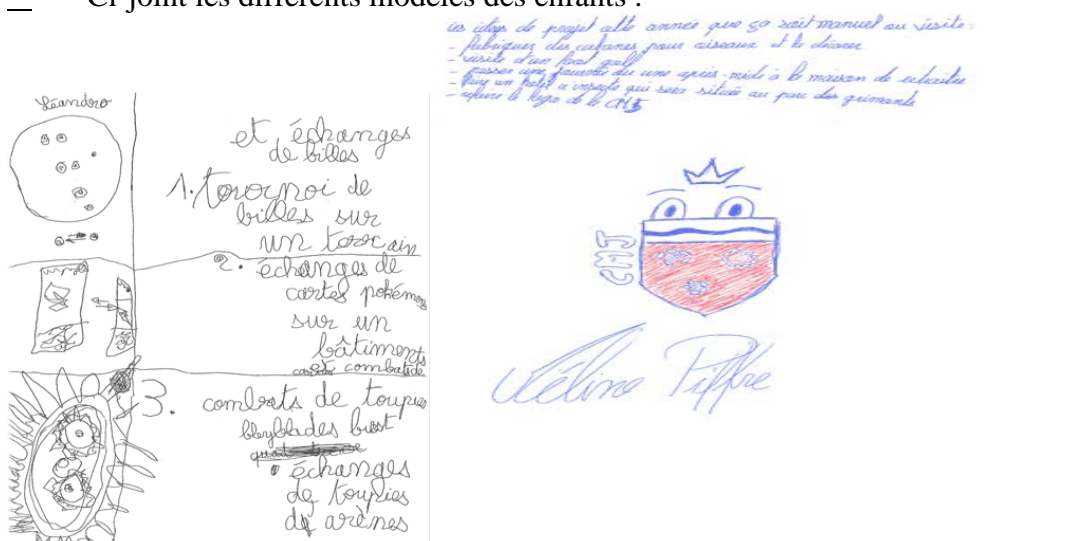 Ci joint les différents modèles des enfants :
Léandro
et échanges
de billes
1. tournoi de
billes sur
un terrain
2. échanges de
cartes pokémon
sur un
bâtiments
et combat de
3. combats de toupies
beyblades burst
échanges
de toupies
de arènes
les idées de projet cette année que ça soit manuel ou visite :
- fabriquer des cabanes pour oiseaux et le décorer
- visite d'un foot golf
- passer une journée ou une après-midi à la maison de retraite
- faire un hôtel à insecte qui sera situé au parc des
- refaire le logo de la CMJ
CMJ
Céline